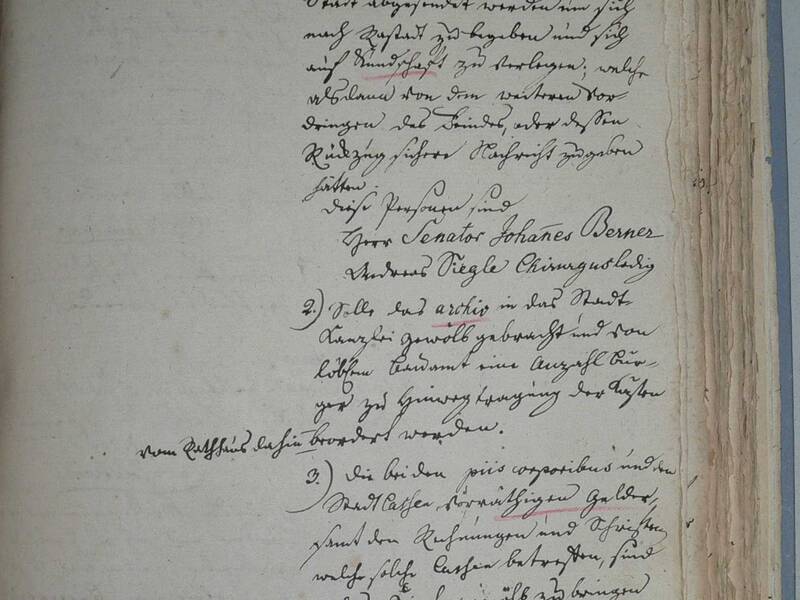 Stadt abgesendet werden um sich
nach Rastadt zu begeben und sich
auf Kundschaft zu verlegen; welche
alsdann von dem weiteren Vor-
dringen des Feindes, oder dessen
Rükzug sichere Nachricht zu geben
hätten.
Diese Personen sind
Herr Senator Johannes Berner
Andreas Siegle Chirurgus ledig
2.) Solle das archiv in das Stadt-
Kanzlei gewölb gebracht und von
löbl. Bauamt eine Anzahl Bur-
ger zu Hinwegtragung der Kästen
vom Rathhaus dahin beordert werden.
3.) Die bei den piis corporibus und den
Stadt Cassen vorräthigen Gelder,
samt den Rechnungen und Schriften
welche solche Cassen betreffen, sind
zu bringen